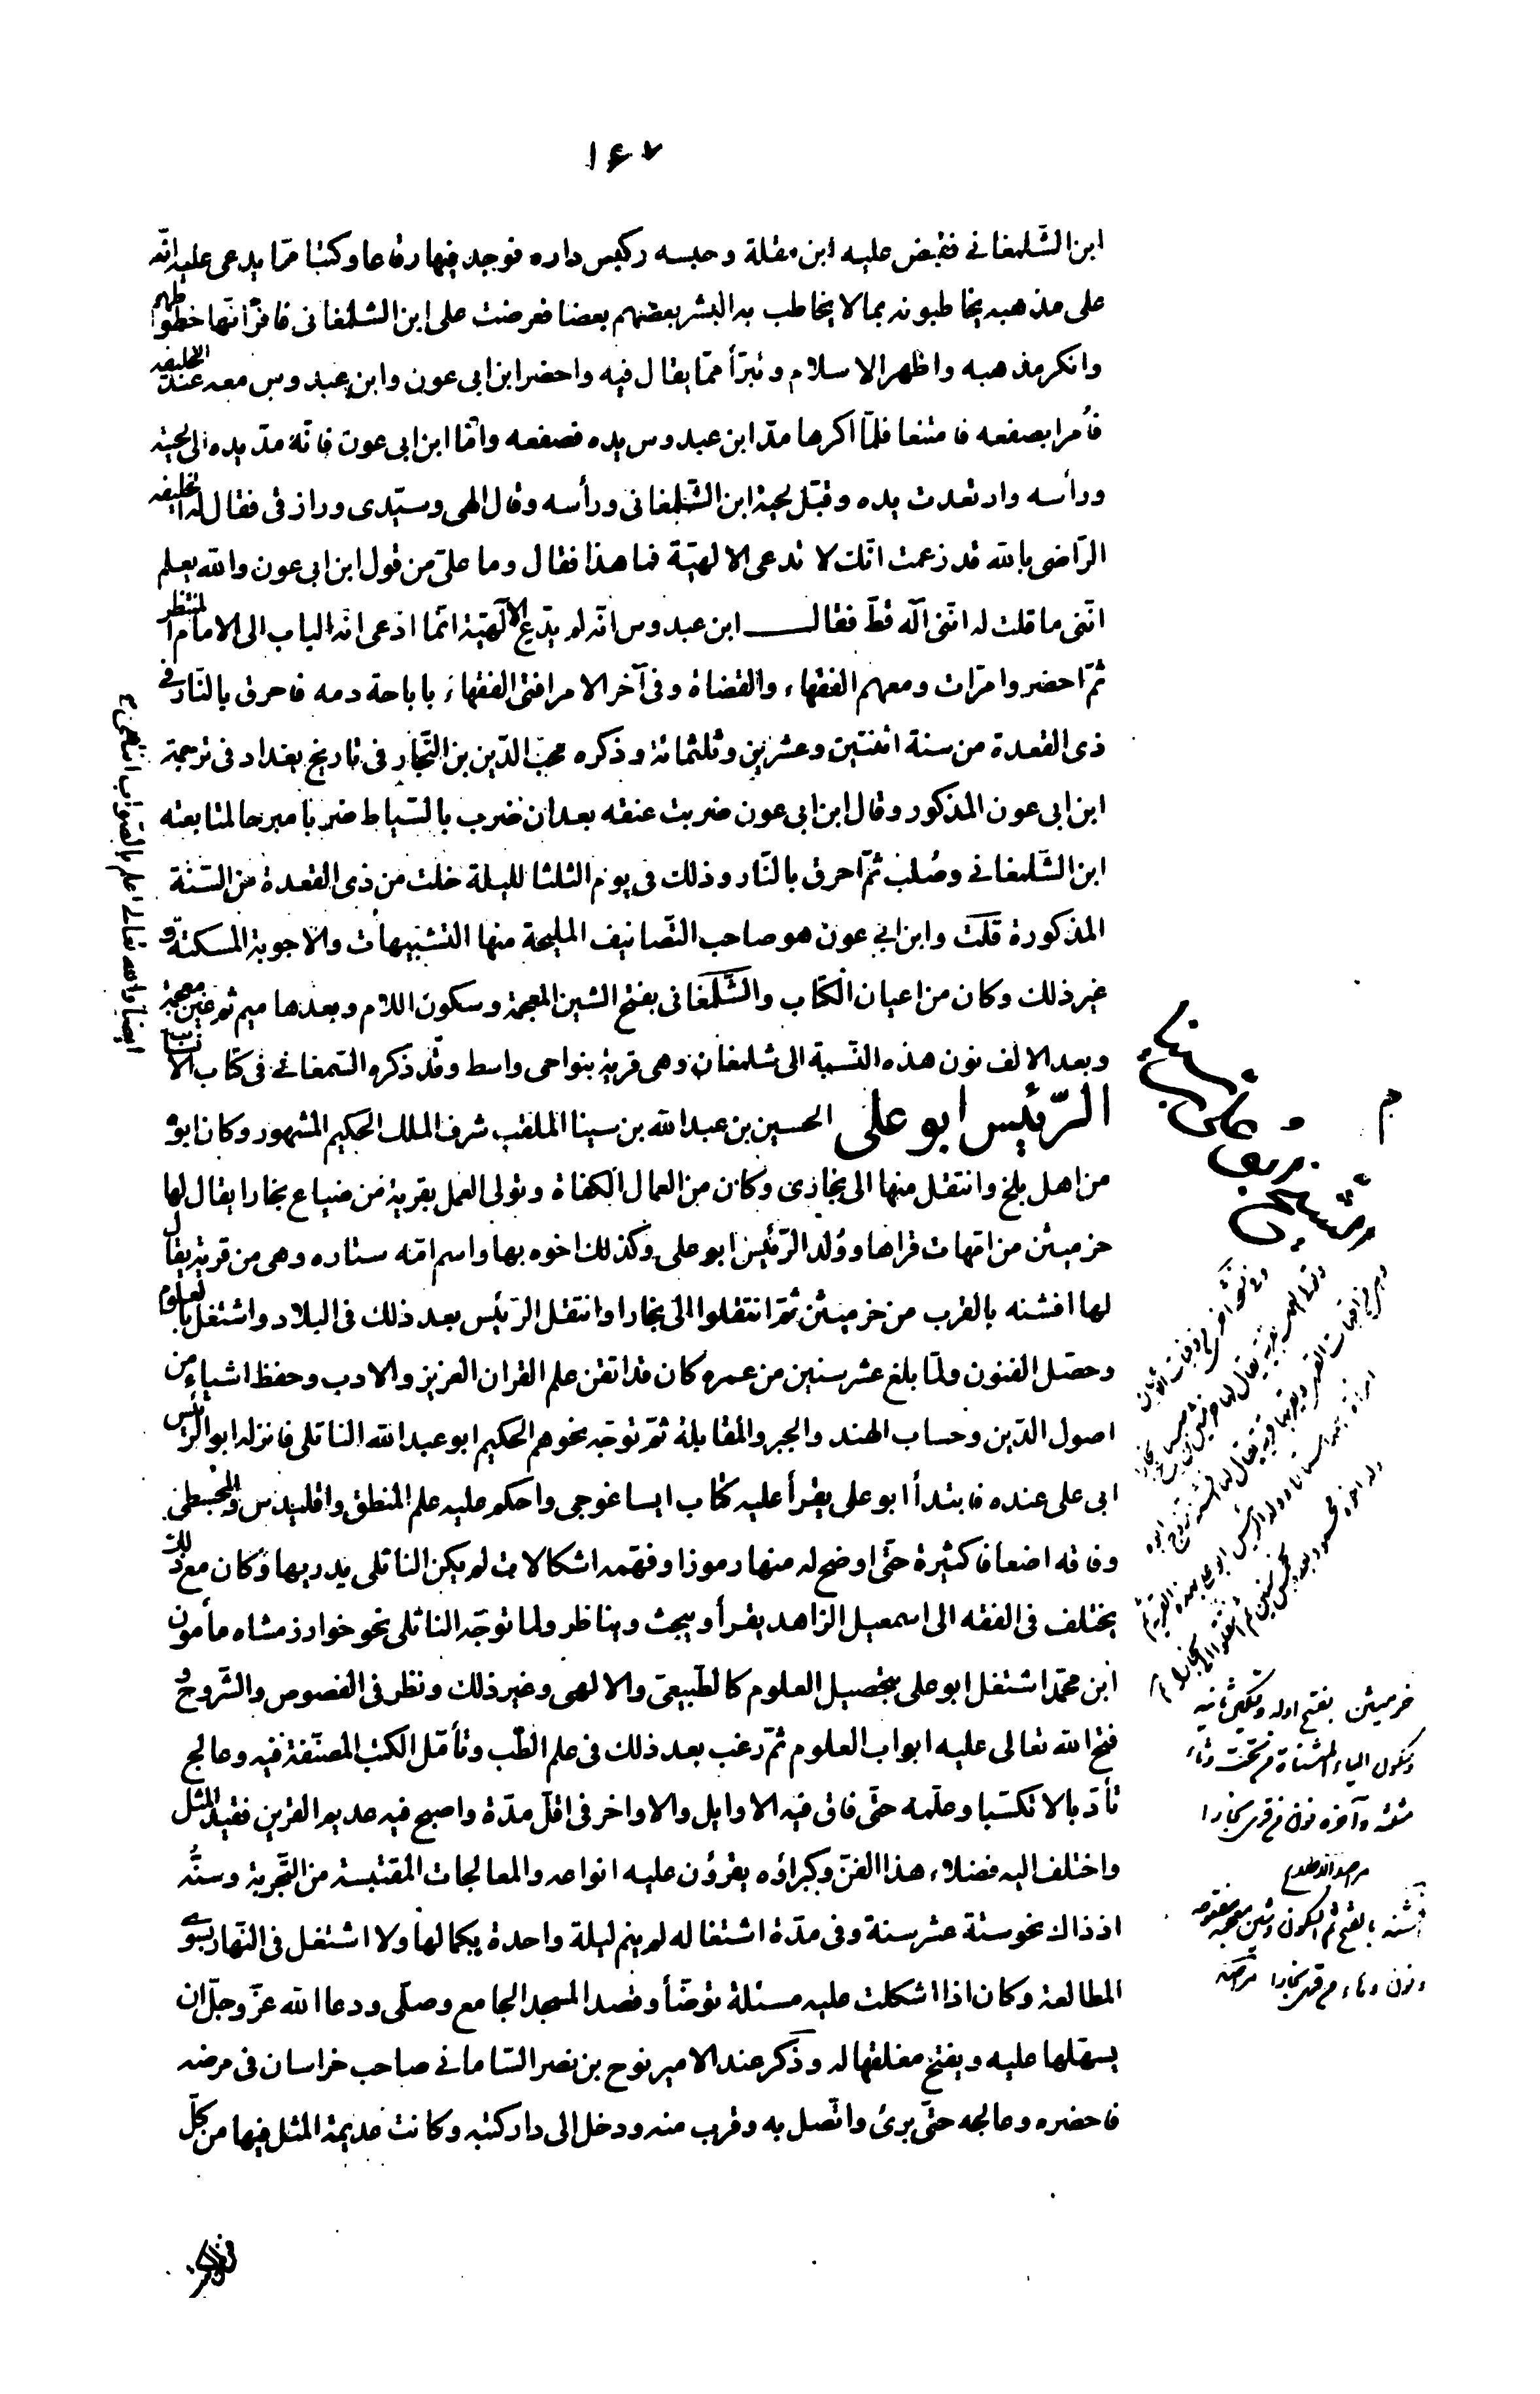 ١٦٧
ابن الشلمغانى فقبض عليه ابن مقلة وحبسه وكبس داره فوجد فيها رقاعا وكتبا مما يدعى عليه انه
على مذهبه يخاطبونه بما لا يخاطب به البشر بعضهم بعضا فعرضت على ابن الشلمغانى فاقر انها خطوطهم
وانكر مذهبه واظهر الاسلام وتبرأ مما يقال فيه واحضر ابن ابى عون وابن عبدوس معه عند الخليفه
فأمرا بصفعه فامتنعا فلما اكرها مد ابن عبدوس يده فصفعه واما ابن ابى عون فانه مد يده الى لحيته
ورأسه وارتعدت يده وقبل لحية ابن الشلمغانى ورأسه وقال الهى وسيدى ورازقى فقال له الخليفه
الراضى بالله قد زعمت انك لا تدعى الالهية فما هذا فقال وما على من قول ابن ابى عون والله يعلم
اننى ما قلت له اننى آله قط فقال ابن عبدوس انه لم يدع الالهية انما ادعى انه الباب الى الامام المنتظر
ثم احضروا مرات ومعهم الفقهاء والقضاة وفى آخر الامر افتى الفقهاء باباحة دمه فاحرق بالنار فى
ذى القعدة من سنة اثنتين وعشرين وثلثمائة وذكره محب الدين بن النجار فى تاريخ بغداد فى ترجمة
ابن ابى عون المذكور وقال ابن ابى عون ضربت عنقه بعد ان ضرب بالسياط ضربا مبرحا لمتابعته
ابن الشلمغانى وصلب ثم احرق بالنار وذلك فى يوم الثلثا لليلة خلت من ذى القعدة من السنة
المذكورة قلت وابن ابى عون هو صاحب التصانيف المليحة منها التشبيهات والاجوبة المسكتة و
غير ذلك وكان من اعيان الكتاب والشلمغانى بفتح الشين المعجمة وسكون اللام وبعدها ميم ثم غين معجمة
وبعد الالف نون هذه النسبة الى شلمغان وهى قرية بنواحى واسط وقد ذكره السمعانى فى كتاب الانساب
ايضا والله تعالى اعلم بالصواب انتهى
الرئيس ابو على الحسين بن عبد الله بن سينا الملقب شرف الملك الحكيم المشهور وكان ابوه
من اهل بلخ وانتقل منها الى بخارى وكان من العمال الكفاة وتولى العمل بقرية من ضياع بخارا يقال لها
خرميثن من امهات قراها وولد الرئيس ابو على وكذلك اخوه بها واسم امه ستاره وهى من قرية يقال
لها افشنه بالقرب من خرميثن ثم انتقلوا الى بخارا وانتقل الرئيس بعد ذلك فى البلاد واشتغل بالعلوم
وحصل الفنون ولما بلغ عشر سنين من عمره كان قد اتقن علم القران العزيز والادب وحفظ اشياء من
اصول الدين وحساب الهند والجبر والمقابلة ثم توجه نحوهم الحكيم ابو عبد الله الناتلى فانزله ابو الرئيس
ابى على عنده فابتدأ ابو على يقرأ عليه كتاب ايساغوجى واحكم عليه علم المنطق واقليدس والمجسطى
وفاقه اضعافا كثيرة حتى اوضح له منها رموزا وفهمه اشكالات لم يكن الناتلى يدريها وكان مع ذلك
يختلف فى الفقه الى اسمعيل الزاهد يقرأ ويبحث ويناظر ولما توجه الناتلى نحو خوارزمشاه مأمون
ابن محمد اشتغل ابو على بتحصيل العلوم كالطبيعى والالهى وغير ذلك ونظر فى الفصوص والشروح
فتح الله تعالى عليه ابواب العلوم ثم رغب بعد ذلك فى علم الطب وتأمل الكتب المصنفة فيه وعالج
تأدبا لا تكسبا وعلمه حتى فاق فيه الاوايل والاواخر فى اقل مدة واصبح فيه عديم القرين فقيد المثل
واختلف اليه فضلاء هذا الفن وكبراؤه يقرؤن عليه انواعه والمعالجات المقتبسة من التجربة وسنه
اذ ذاك نحو ستة عشر سنة وفى مدة اشتغاله لم ينم ليلة واحدة بكمالها ولا اشتغل فى النهار بسوى
المطالعة وكان اذا اشكلت عليه مسئلة توضأ وقصد المسجد الجامع وصلى ودعا الله عز وجل ان
يسهلها عليه ويفتح مغلقها له وذكر عند الامير نوح بن نصر السامانى صاحب خراسان فى مرضه
فاحضره وعالجه حتى برئ واتصل به وقرب منه ودخل الى دار كتبه وكانت عديمة المثل فيها من كل
خرميثن بفتح اوله وتسكين ثانيه
وسكون الياء المثناة من تحت وثاء
مثلثه وآخره نون من قرى بخارا
مراصد الاطلاع
افشنه بالفتح ثم السكون وشين معجمه مفتوحه
ونون وهاء من قرى بخارا